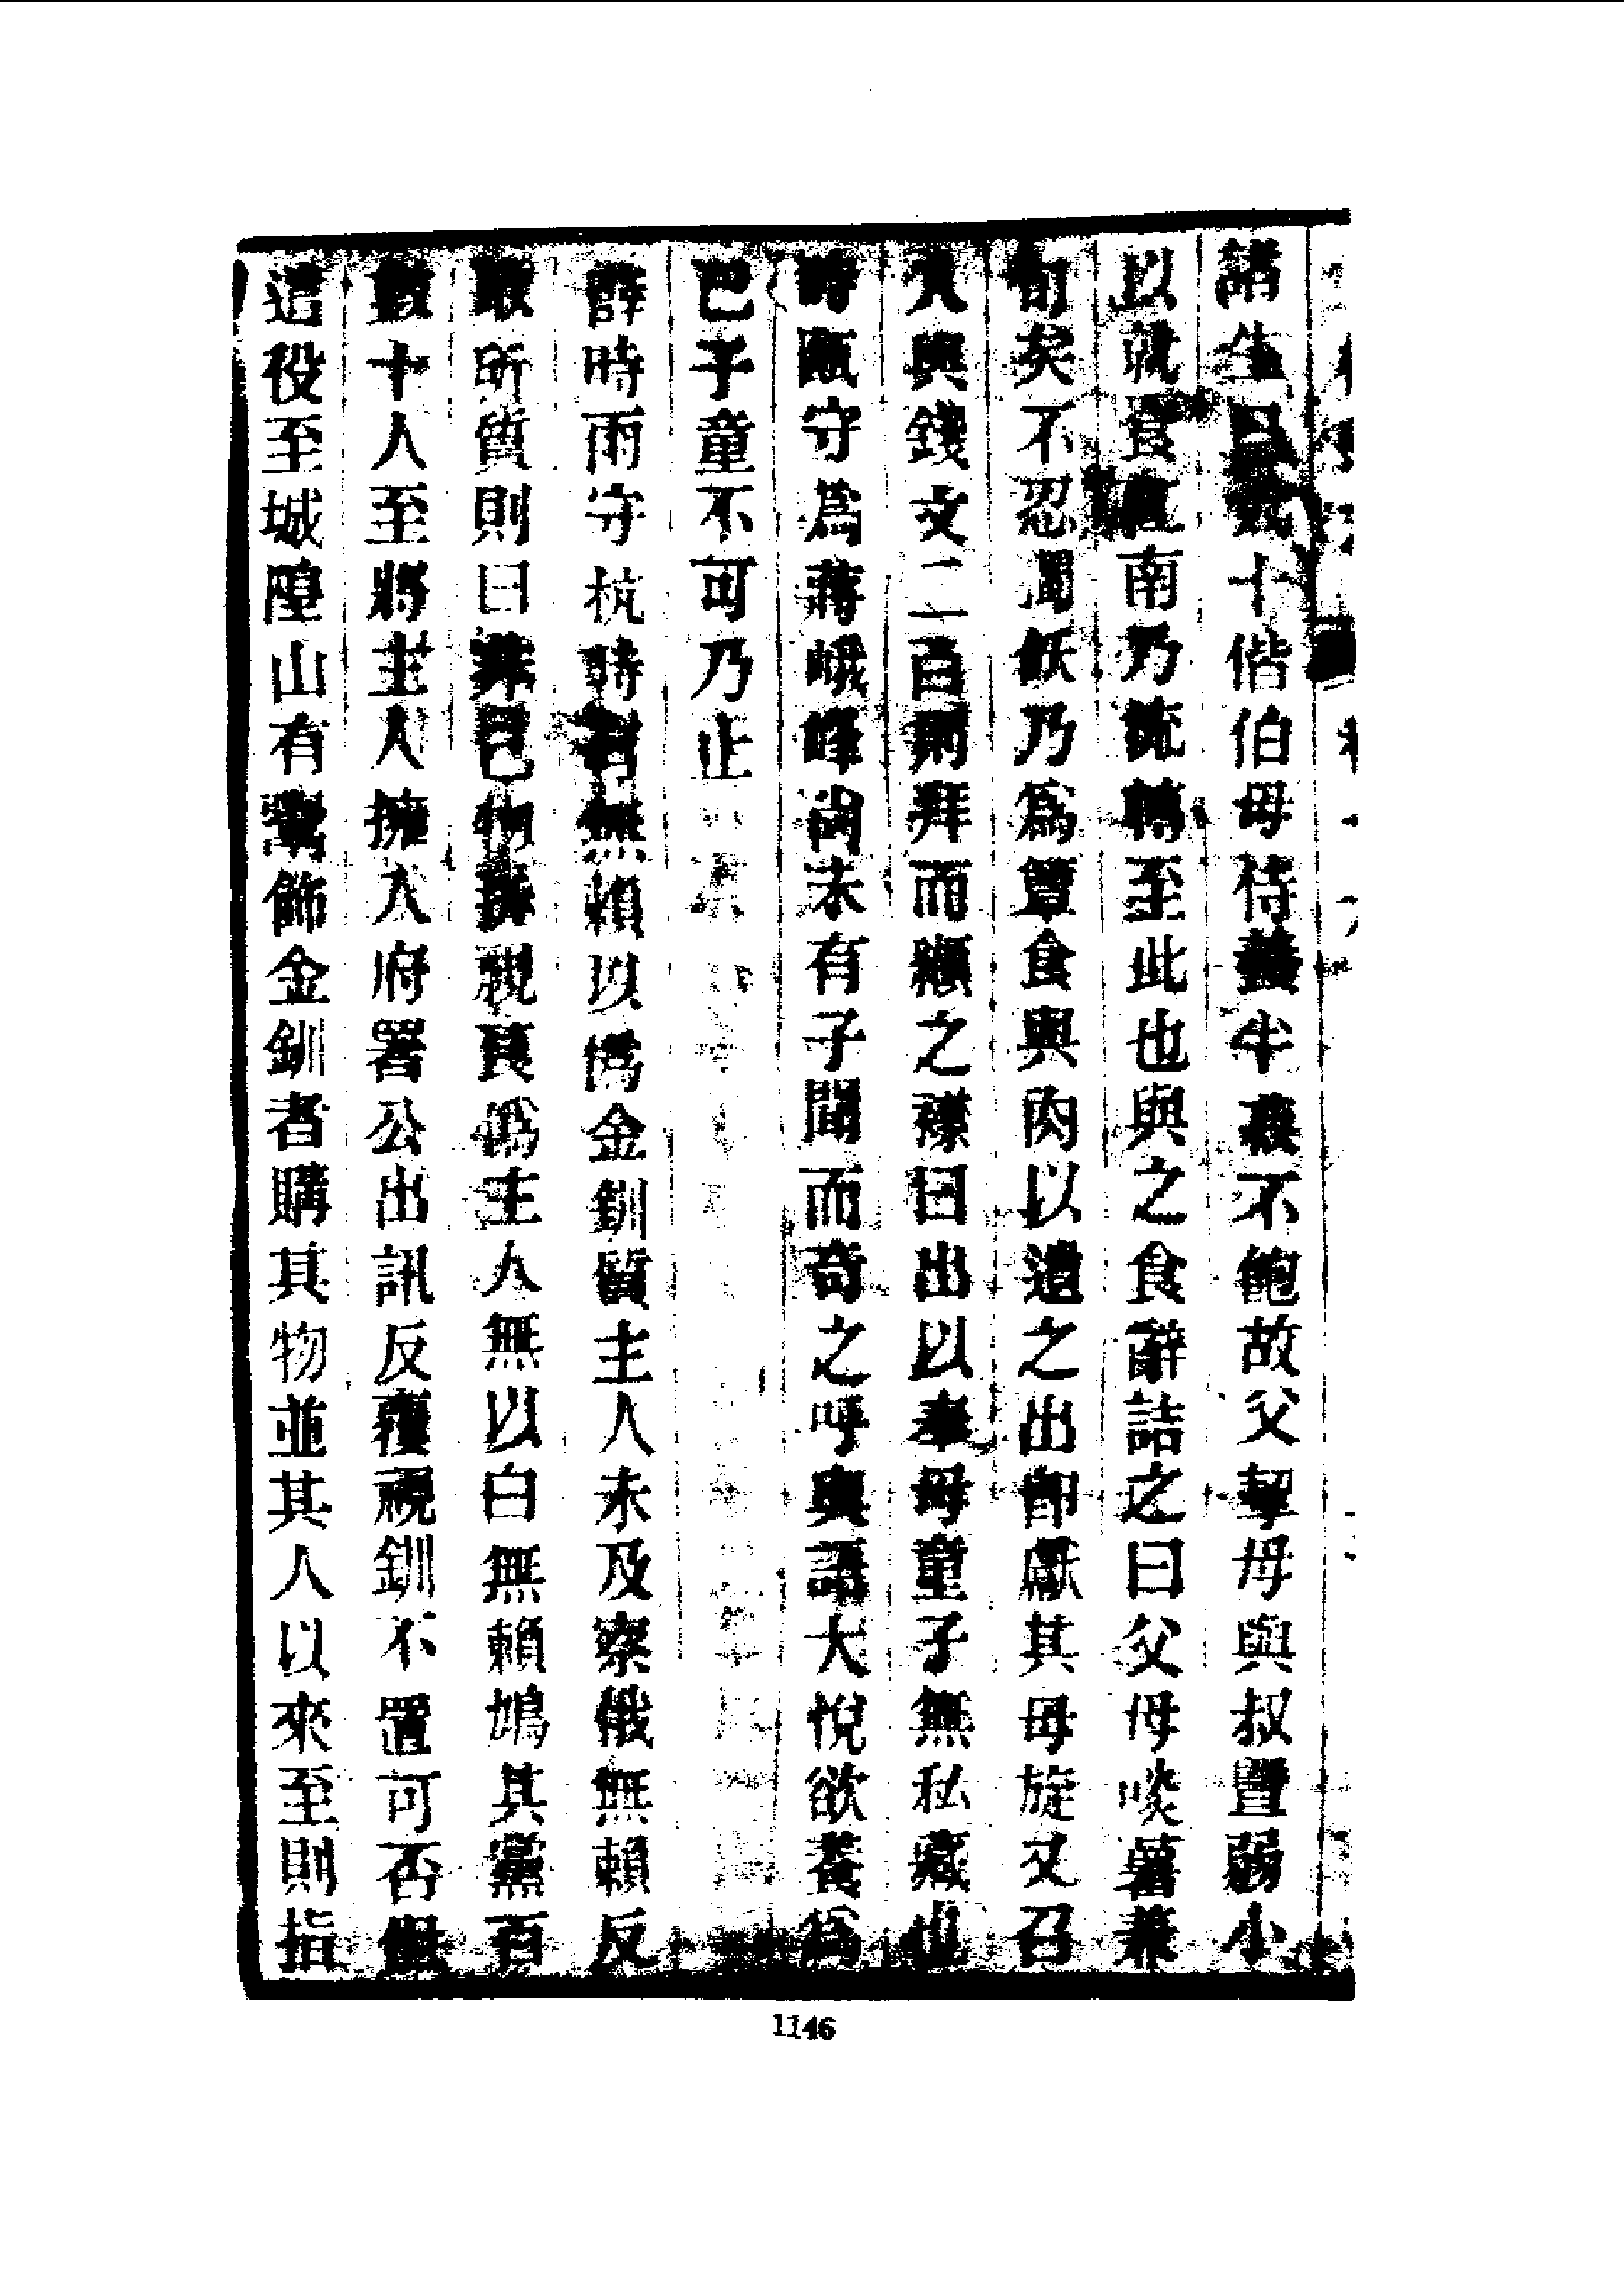 諸生口數十偕伯母待養半菽不飽故父挈母與叔暨弱小
以就食江南乃流轉至此也與之食辭詰之曰父母啖薯兼
旬矣不忍聞飫乃爲覃食與肉以遺之出卽獻其母旋又召
入與錢文二百肅拜而纈之襟曰出以奉母童子無私藏也
時甌守爲蔣峨峰尚未有子聞而奇之呼與語大悅欲養爲
巴子童不可乃止
薛時雨守杭時有無賴以僞金釧質主人未及察俄無賴反
取所質則曰非己物指親良僞主人無以白無賴鳩其黨百
數十人至將主人擁入府署公出訊反覆視釧不置可否但
遣役至城隍山有鬻飾金釧者購其物並其人以來至則指
1146